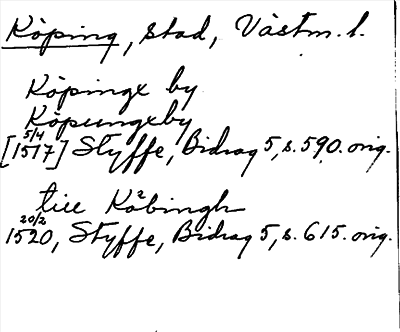 Köping, stad, Västm. l.
Köpinge by
Köpungeby
5/4
[1517] Styffe, Bidrag 5, s. 590. orig.
till Köbingh
20/2
1520, Styffe, Bidrag 5, s. 615. orig.